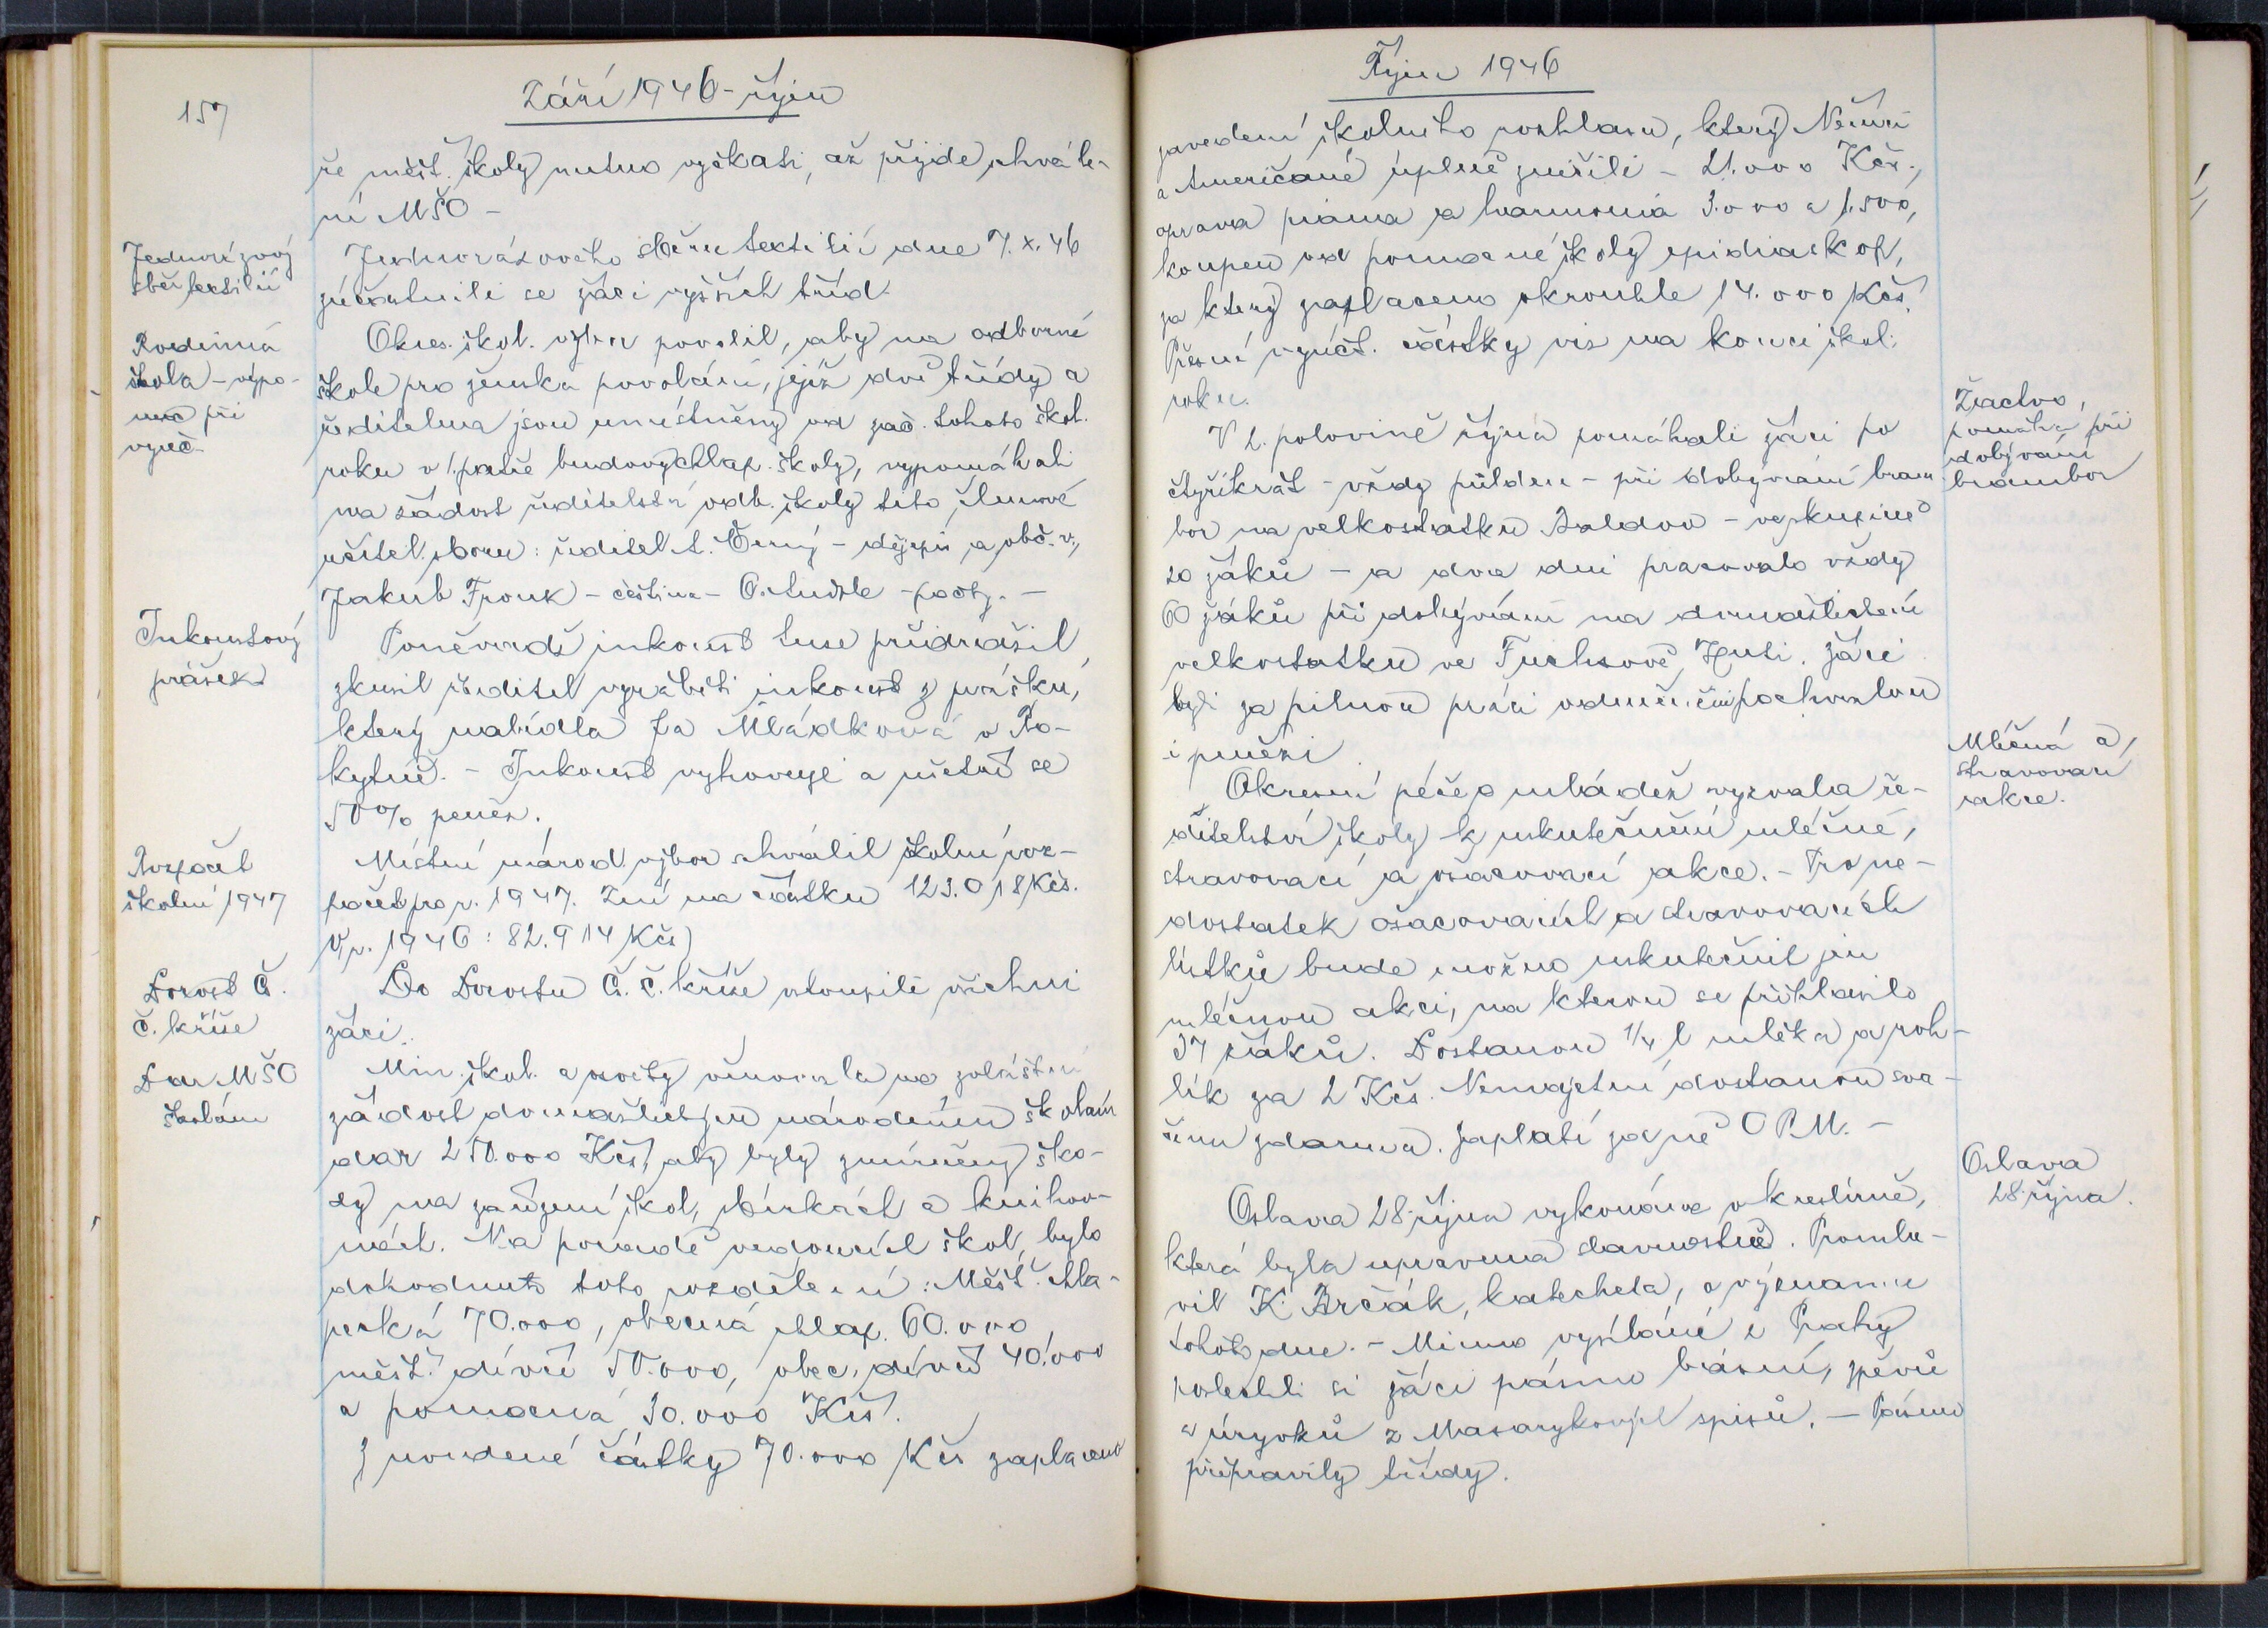 157
Září 1946 - říjen
že měšť. školy nutno vyčkati, až přijde schvále-
ní MŠO -
Jednorázový
sběr textilií
Jednorázového sběru textilií dne 7. X. 46
zúčastnili se žáci vyšších tříd.
Rodinná
škola - výpo-
moc při
vyuč.
Okres. škol. výbor povolil, aby na odborné
škole pro ženská povolání, jejíž dvě třídy a
ředitelna jsou umístněny od zač. tohoto škol.
roku v I. patře budovy chlap. školy, vypomáhali
na žádost ředitelství odb. školy tito členové
učitel. sboru: ředitel A. Černý - dějepis a obč. v.,
Jakub Fronk - čeština - O. - počty. -
Inkoustový
prášek
Poněvadž inkoust tuse přidražil,
zkusil ředitel vyráběti inkoust z prášku,
který nabídla fa Mládková v Ro-
kytně. - Inkoust vyhovuje a ušetří se
50% peněz.
Rozpočet
školní 1947
Místní národ. výbor schválil školní roz-
počet pro r. 1947. Zní na částku 123.018 Kčs.
(V r. 1946: 82.914 Kčs)
Dorost Č.
č. kříže
Do Dorostu Č. č. kříže vstoupili všichni
žáci.
Dar MŠO
školám
Min. škol. a osvěty věnovala na zvláštní
žádost domažlickým národním školám
dar 250.000 Kčs, aby byly zmírněny ško-
dy na zařízení škol, sbírkách a knihov-
nách. Na poradě vedoucích škol bylo
dohodnuto toto rozdělení: Měšť. chla-
pecká 70.000, obecná chlap. 60.000,
měšť. dívčí 50.000, obec. dívčí 40.000
a pomocná 30.000 Kčs.
Z uvedené částky 70.000 Kčs zaplaceno
Říjen 1946
zavedení školního rozhlasu, který Němci
a Američané úplně zničili - 21.000 Kčs.,
oprava piana a harmonia 3.000 a 1.500,
koupen od pomocné školy epidiaskop,
za který zaplaceno okrouhle 14.000 Kčs.
Přesné vyúčt. částky viz na konci škol.
roku.
Žactvo
pomáhá při
dobývání
brambor
V 2. polovině října pomáhali žáci po
čtyřikrát - vždy půlden - při dobývání bram-
bor na velkostatku Baldov - ve skupině
20 žáků - a dva dni pracovalo vždy
60 žáků při dobývání na domažlickém
velkostatku ve Fuchsově Huti. Žáci
byli za pilnou práci odměněni pochvalou
i penězi.
Mléčná a
stravovací
akce.
Okresní péče o mládež vyzvala ře-
ditelství školy k uskutečnění mléčné,
stravovací a ošacovací akce. - Pro ne-
dostatek ošacovacích a stravovacích
lístků bude možno uskutečnit jen
mléčnou akci, na kterou se přihlásilo
37 žáků. Dostanou 1/4 l mléka a roh-
lík za 2 Kčs. Nemajetní dostanou sva-
činu zdarma. Zaplatí za ně OPM. -
Oslava
28. října.
Oslava 28. října vykonána v kreslírně,
která byla upravena slavnostně. Promlu-
vil K. Brčák, katecheta, o významu
tohoto dne. - Mimo vysílání z Prahy
poslechli si žáci pásmo básní, zpěvů
a úryvků z Masarykových spisů. - Pásmo
připravily třídy.